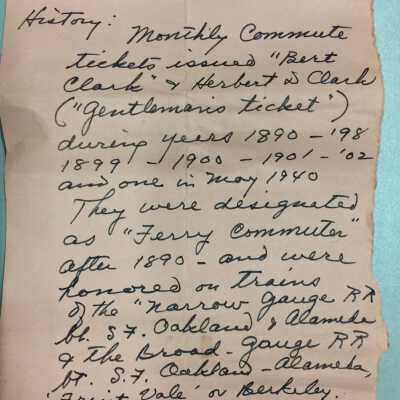 History: Monthly Commute
tickets issued "Bert
Clark" & Herbert D Clark
("Gentleman's ticket")
during years 1890 - '98
1899 - 1900 - 1901 - '02
and one in May 1940
They were designated
as "Ferry Commuter"
after 1890 - and were
honored on trains
of the "Narrow gauge RR
bt. S.F. Oakland & Alameda
& the Broad-gauge RR
bt. S.F. Oakland - Alameda,
'Fruit Vale' or Berkeley.